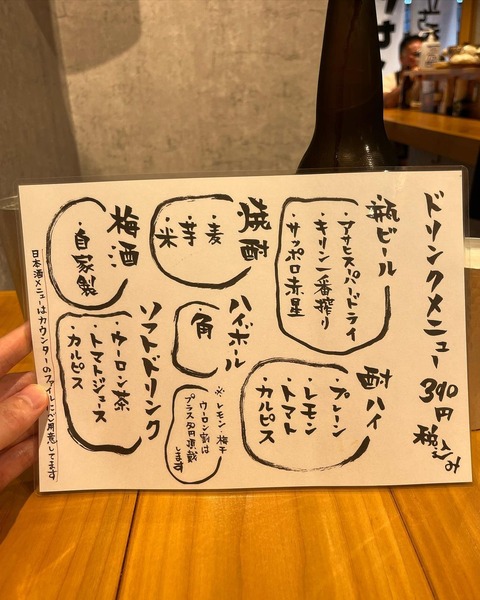 ドリンクメニュー 390円 税込み
瓶ビール
・アサヒスーパードライ
・キリン一番搾り
・サッポロ赤星
酎ハイ
・プレーン
・レモン
・トマト
・カルピス
焼酎
・麦
・芋
・米
ハイボール
・角
※レモン・梅干
ウーロン割は
プラス50円頂戴
します
梅酒
・自家製
ソフトドリンク
・ウーロン茶
・トマトジュース
・カルピス
日本酒メニューはカウンターのファイルにご用意してます